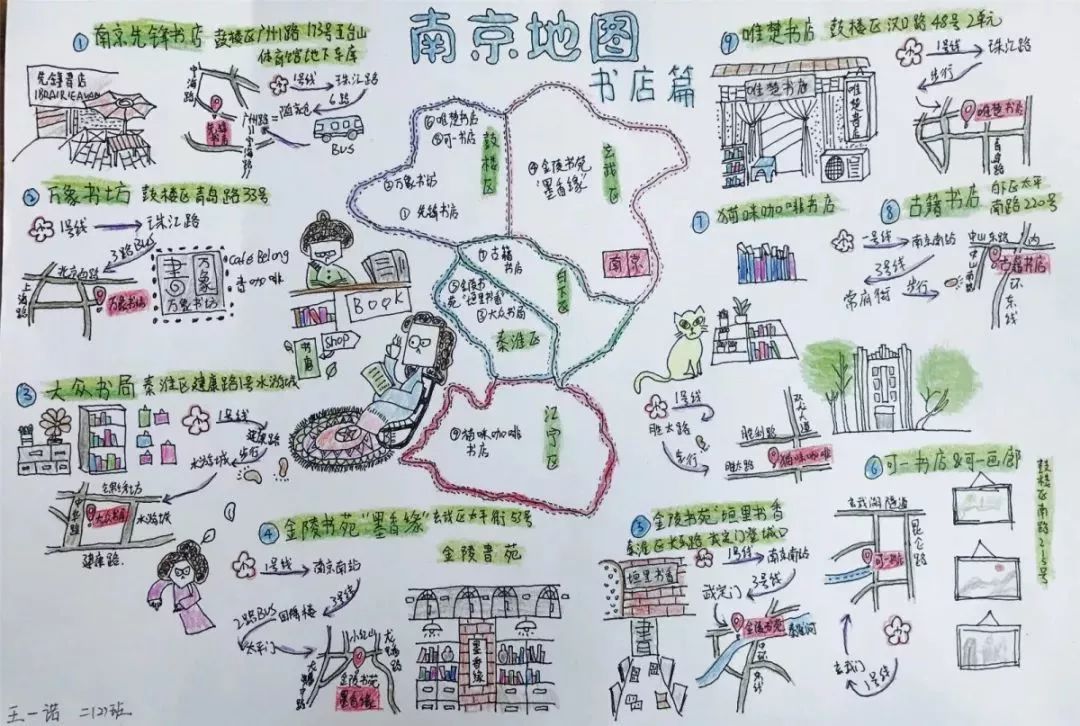 南京地图
书店篇
① 南京先锋书店 鼓楼区广州路173号五台山
体育馆地下车库
先锋書店
1号线
珠江路
6路
BUS
广州路
② 万象书坊 鼓楼区青岛路33号
1号线
珠江路
3路BUS
北京西路
上海路
万象书坊
書
万象
万象书坊
café Belong
香咖啡
③ 大众书局 秦淮区建康路1号水游城
1号线
建康路
步行
水游城
中华路
大众书局
水游城
建康路
BOOK
shop
书店
⑥唯楚书店
⑨可一书店
②万象书坊
①先锋书店
鼓楼区
④金陵书苑
"墨香缘"
玄武区
南京
⑧古籍
书店
⑤金陵书
苑"垣里书香"
③大众书局
白下区
秦淮区
⑦猫咪咖啡
书店
江宁区
④ 金陵书苑"墨香缘" 玄武区太平街53号
金陵書苑
1号线
南京南站
3号线
2路BUS
太平门
小红山
金陵书苑
墨香缘
墨香缘
⑤ 金陵书苑"垣里书香"
垣里书香
書
1号线
南京南站
3号线
武定门
金陵书苑
秦淮河
⑥ 可一书店&可一画廊
玄武湖隧道
昆仑路
可一书店
玄武门
1号线
⑦ 猫咪咖啡书店
1号线
胜太路
步行
胜利路
双龙大道
胜太路
猫咪咖啡
⑧ 古籍书店 白下区太平
南路220号
一号线
南京南站
3号线
常府街
步行
中山东路
中山南路
古籍书店
⑨ 唯楚书店 鼓楼区汉口路48号2单元
唯楚书店
唯楚書店
1号线
珠江路
步行
唯楚书店
青岛路
王一诺 二(2)班